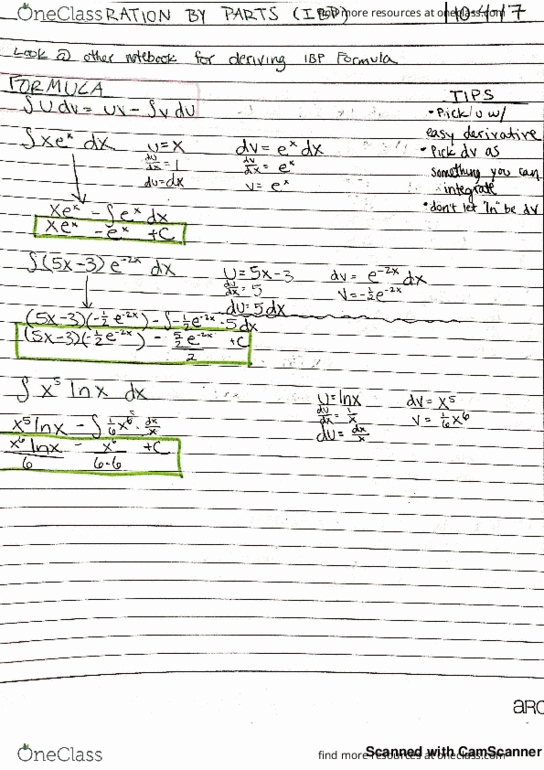 OneClass RATION BY PARTS (IBP) find more resources at oneclass.com
Look @ other notebook for deriving IBP Formula
FORMULA
∫Udv = uv - ∫v du
TIPS
• Pick u w/
easy derivative
• Pick dv as
something you can
integrate
• don't let "ln" be dv
∫xe^x dx
U=x
du/dx = 1
du=dx
dv=e^x dx
dv/dx = e^x
v=e^x
xe^x - ∫e^x dx
xe^x - e^x + C
∫(5x-3)e^-2x dx
U=5x-3
du/dx = 5
du=5dx
dv= e^-2x dx
V=-1/2e^-2x
(5x-3)(-1/2e^-2x) - ∫-1/2e^-2x · 5dx
(5x-3)(-1/2e^-2x) - 5/2e^-2x/2 +C
∫x^5 ln x dx
U=lnx
du/dx = 1/x
dU= dx/x
dv= x^5
v= 1/6x^6
x^5 lnx - ∫1/6x^6 · dx/x
x^6 lnx/6 - x^6/6·6 +C
arc
OneClass
find more resources at oneclass.com
Scanned with CamScanner